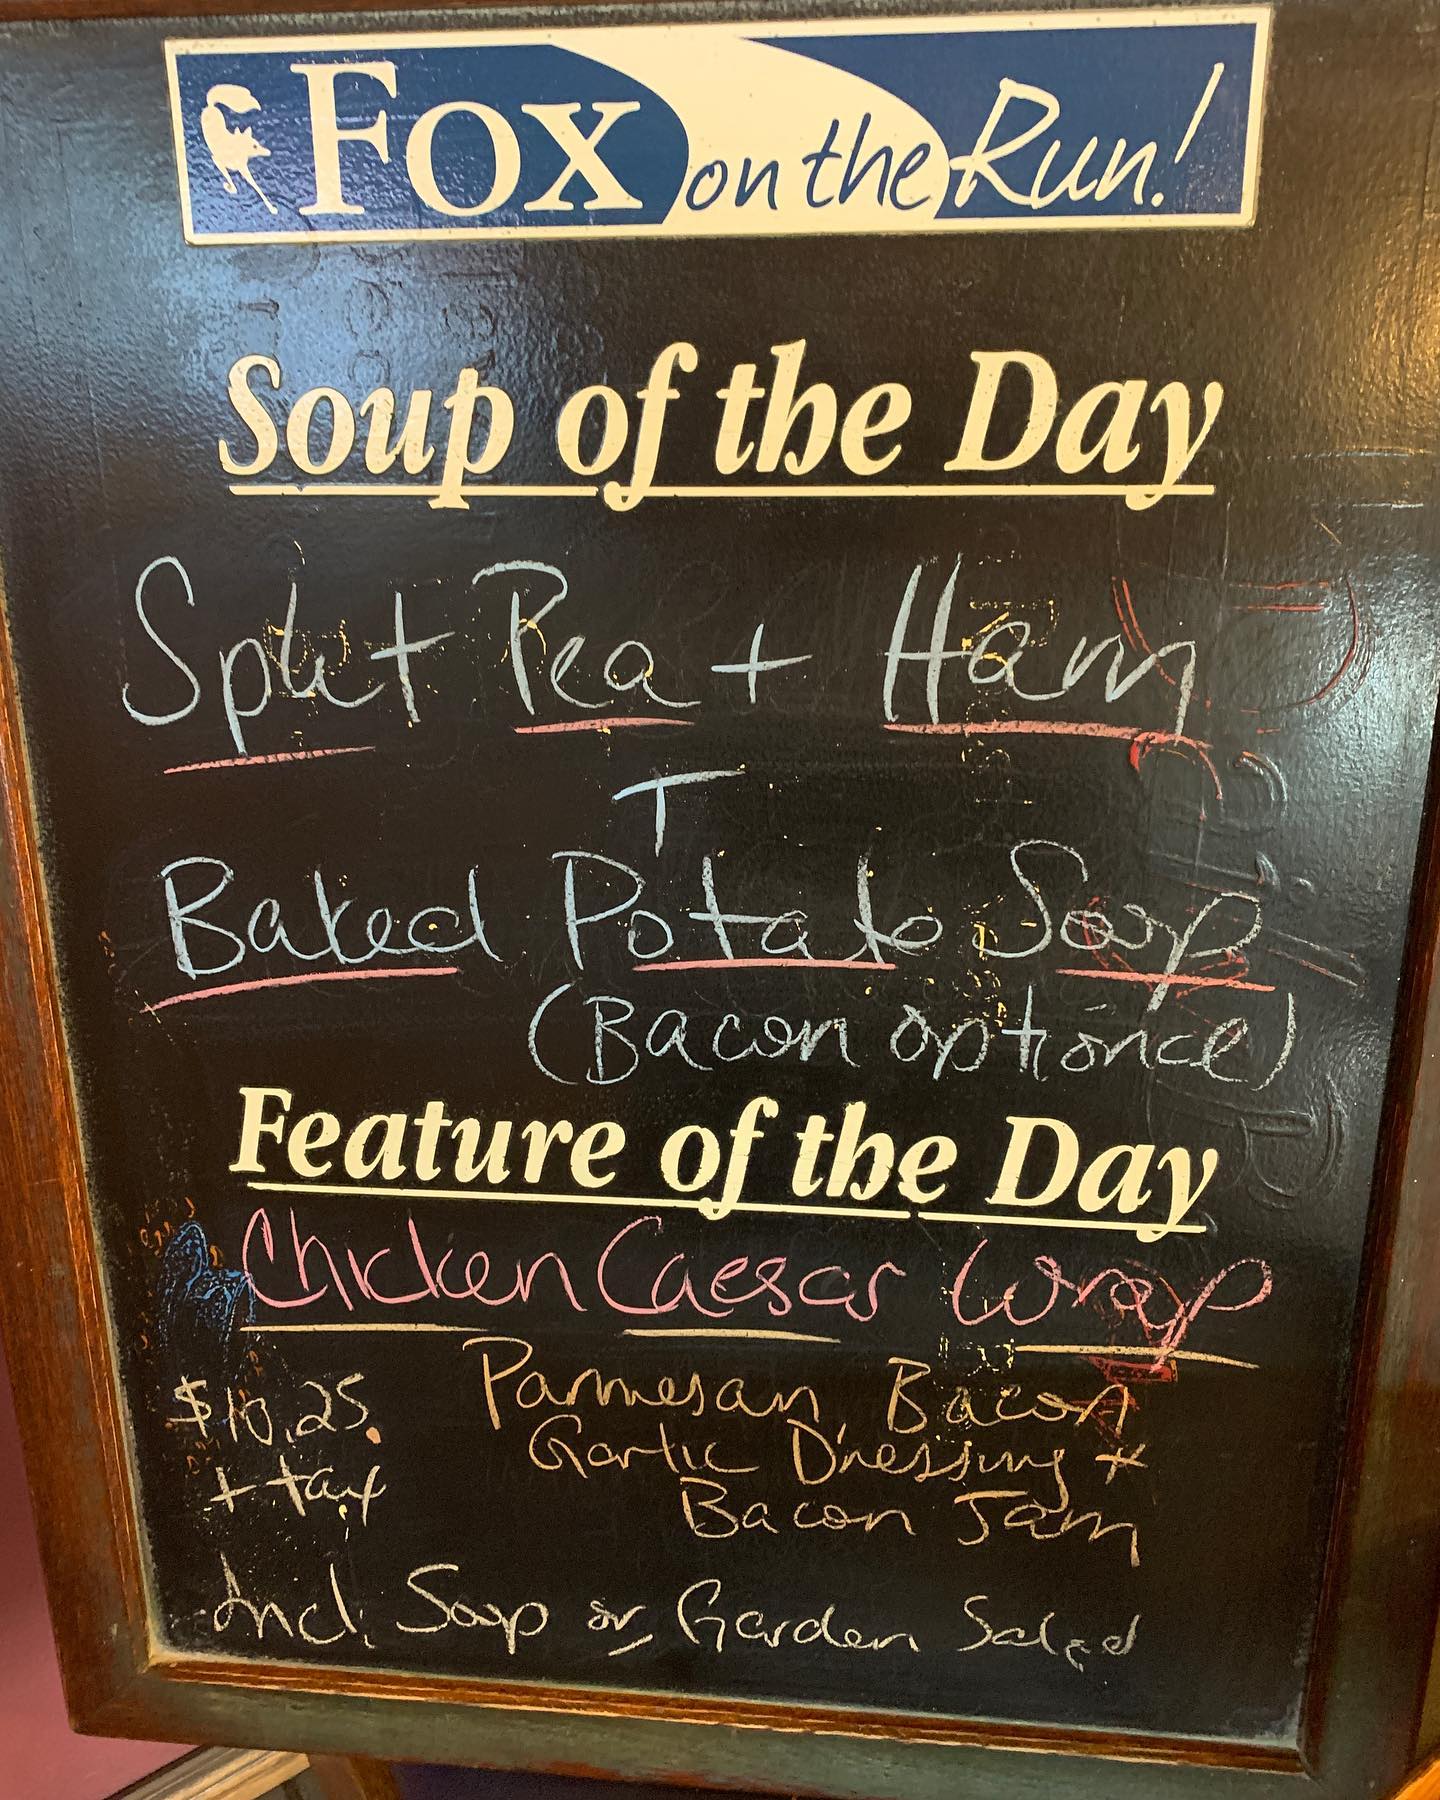 Fox on the Run!
Soup of the Day
Split Pea + Ham
T
Baked Potato Soup
(Bacon optionce)
Feature of the Day
Chicken Caesar Wrap
Parmesan, Bacon
$10.25 Garlic Dressing +
+ tax Bacon Jam
Incl. Soup or Garden Salad